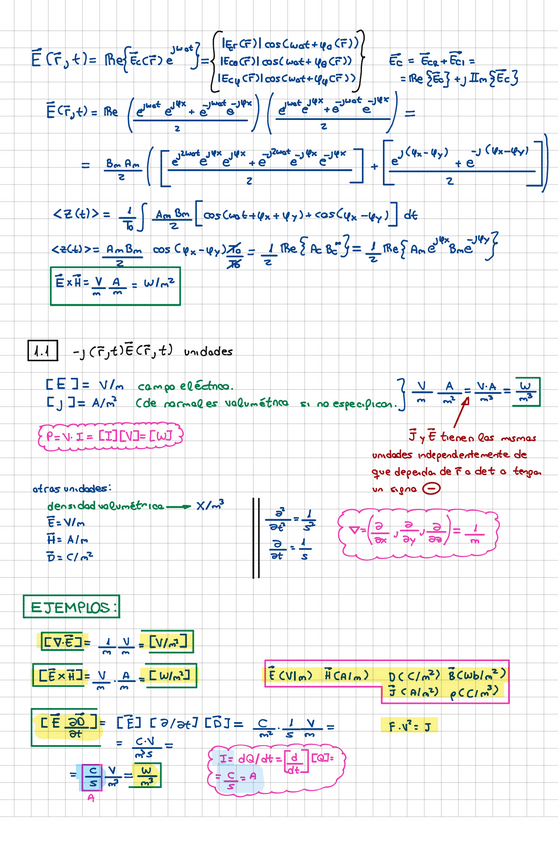 E⃗(r⃗,t) = Re{E⃗c(r⃗) e^jω₀t} = { |Er(r⃗)| cos(ω₀t+φa(r⃗))
|Eθ(r⃗)| cos(ω₀t+φθ(r⃗))
|Eφ(r⃗)| cos(ω₀t+φφ(r⃗)) }
E⃗c = E⃗cr + E⃗ci =
= Re{E⃗c} + j Im{E⃗c}
E⃗(r⃗,t) = Re ( (e^jω₀t e^jφx + e^-jω₀t e^-jφx)/2 ) ( (e^jω₀t e^jφx + e^-jω₀t e^-jφx)/2 ) =
= BmAm/2 ( [ (e^j2ω₀t e^jφx e^jφx + e^-j2ω₀t e^-jφx e^-jφx)/2 ] + [ (e^j(φx-φy) + e^-j(φx-φy))/2 ] )
<z(t)> = 1/T₀ ∫ AmBm/2 [cos(ω₀t+φx+φy) + cos(φx-φy)] dt
<z(t)> = AmBm/2 cos(φx-φy) T₀/T₀ = 1/2 Re{Ac Bc*} = 1/2 Re{Am e^jφx Bm e^-jφy}
E⃗xH⃗ = V/m A/m = W/m²
1.1 -j(r⃗,t)E⃗(r⃗,t) unidades
[E] = V/m campo eléctrico.
[J] = A/m² (de normal es volumétrica si no especifican.
} V/m A/m² = V·A/m³ = W/m³
P = V·I = [I][V] = [W]
J⃗ y E⃗ tienen las mismas
unidades independientemente de
que dependa de r⃗ o de t o tenga
un signo ⊖
otras unidades:
densidad volumétrica → X/m³
E⃗ = V/m
H⃗ = A/m
D⃗ = C/m²
∂²/∂t² = 1/s²
∂/∂t = 1/s
∇ = (∂/∂x, ∂/∂y, ∂/∂z) = 1/m
EJEMPLOS:
[∇·E⃗] = 1/m V/m = [V/m²]
[E⃗xH⃗] = V/m · A/m = [W/m²]
E⃗(V/m) H⃗(A/m) D(C/m²) B⃗(Wb/m²)
J⃗(A/m²) ρ(C/m³)
[E⃗ ∂D⃗/∂t] = [E⃗][∂/∂t][D⃗] = C/m² · 1/s V/m =
F·V² = J
= C·V/m³s =
= C/s V/m³ = W/m³
A
I = dQ/dt = [d/dt][Q] =
= C/s = A